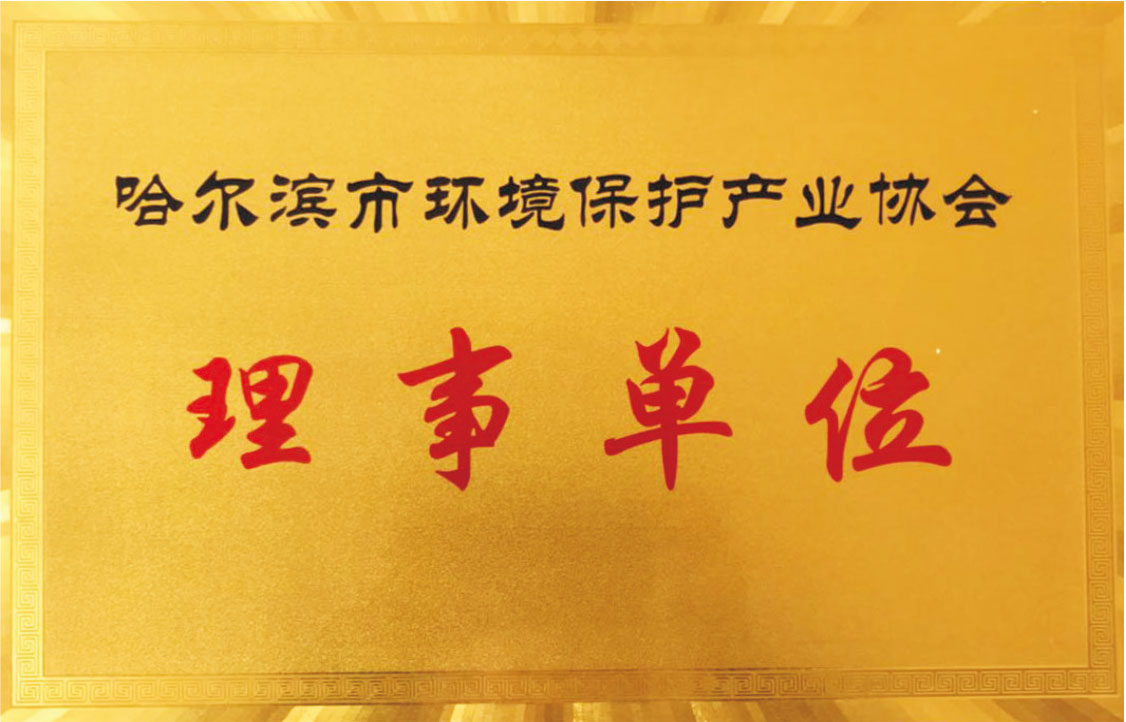 哈尔滨市环境保护产业协会
理事单位